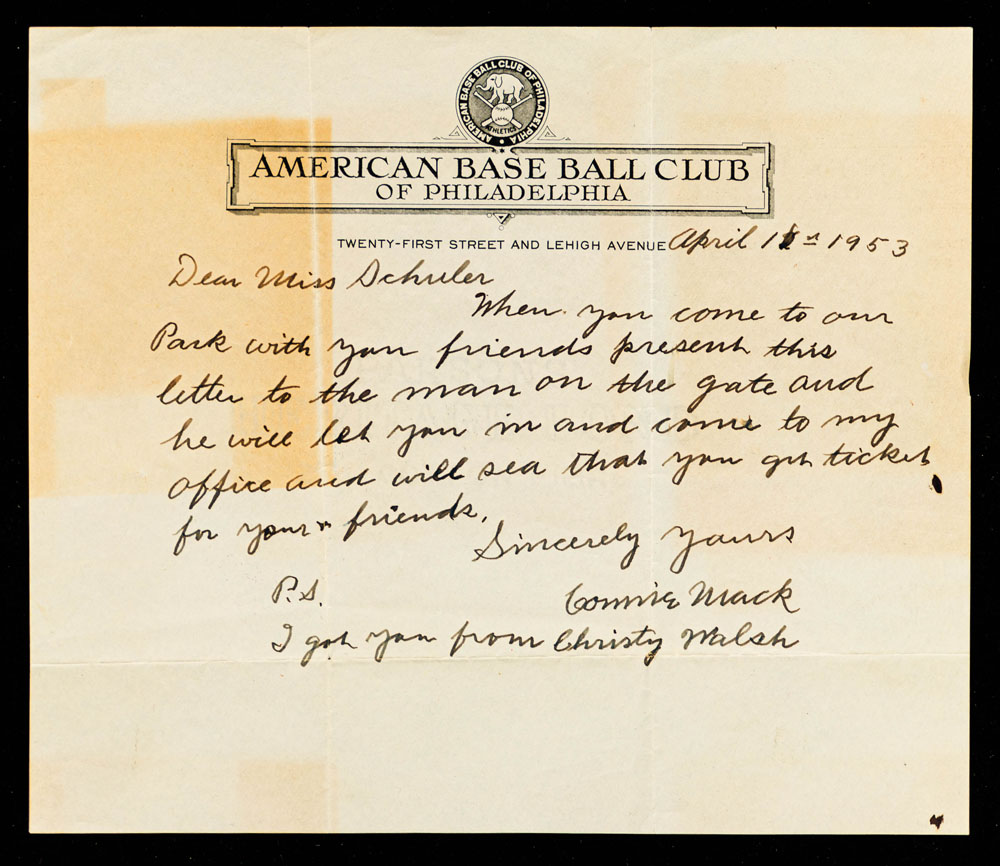 AMERICAN BASE BALL CLUB OF PHILADELPHIA
ATHLETICS
AMERICAN BASE BALL CLUB
OF PHILADELPHIA
TWENTY-FIRST STREET AND LEHIGH AVENUE April 1 1953
Dear Miss Schuler
When you come to our
Park with you friends present this
letter to the man on the gate and
he will let you in and come to my
office and will sea that you get ticket
for your friends.
Sincerely Yours
P.S. Connie Mack
I got you from Christy Walsh